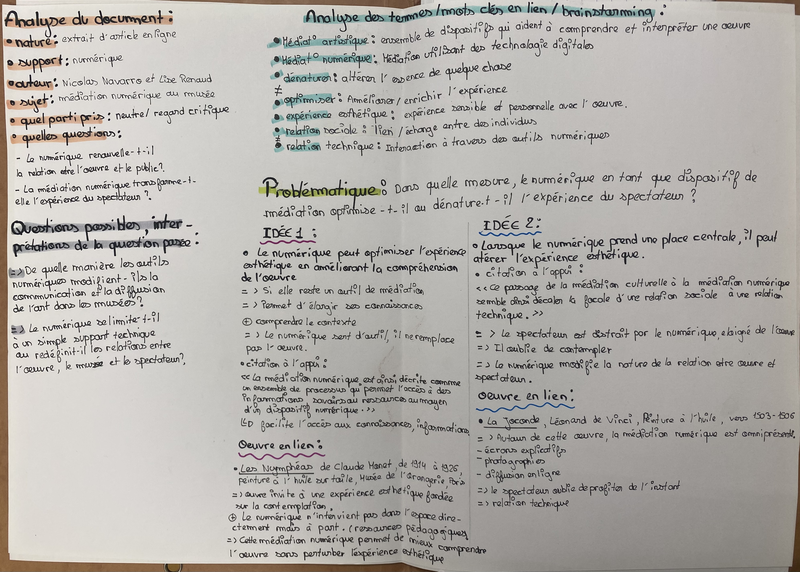 Analyse du document :
• nature : extrait d'article en ligne
• support : numérique
• auteur : Nicolas Navarro et Lise Renaud
• sujet : médiation numérique au musée
• quel parti pris : neutre / regard critique
• quelles questions :
- Le numérique renouvelle-t-il
la relation entre l'œuvre et le public ?
- La médiation numérique transforme-t-
elle l'expérience du spectateur ?
Questions possibles, inter-
prétations de la question posée :
=> De quelle manière les outils
numériques modifient-ils la
communication et la diffusion
de l'art dans les musées ?
=> Le numérique se limite-t-il
à un simple support technique
ou redéfinit-il les relations entre
l'œuvre, le musée et le spectateur ?
Analyse des termes / mots clés en lien / brainstorming :
• Médiat° artistique : ensemble de dispositifs qui aident à comprendre et interpréter une œuvre
• Médiat° numérique : Médiation utilisant des technologie digitales
• dénaturer : altérer l'essence de quelque chose
≠
• optimiser : Améliorer / enrichir l'expérience
• expérience esthétique : expérience sensible et personnelle avec l'œuvre.
• relation sociale : lien / échange entre des individus
≠
• relation technique : Interaction à travers des outils numériques
Problématique : Dans quelle mesure, le numérique en tant que dispositif de
médiation optimise-t-il ou dénature-t-il l'expérience du spectateur ?
IDÉE 1 :
• Le numérique peut optimiser l'expérience
esthétique en améliorant la compréhension
de l'œuvre
=> Si elle reste un outil de médiation
=> Permet d'élargir ses connaissances
⊕ comprendre le contexte
=> Le numérique sert d'outil, il ne remplace
pas l'œuvre.
• citation à l'appui :
<< La médiation numérique est ainsi décrite comme
un ensemble de processus qui permet l'accès à des
informations, savoirs ou ressources au moyen
d'un dispositif numérique. >>
↳ facilite l'accès aux connaissances, informations
Oeuvre en lien :
• Les Nymphéas de Claude Monet, de 1914 à 1926,
peinture à l'huile sur toile, Musée de l'Orangerie, Paris
=> œuvre invite à une expérience esthétique fondée
sur la contemplation.
⊕ Le numérique n'intervient pas dans l'espace dire-
ctement mais à part. (ressources pédagogiques)
=> Cette médiation numérique permet de mieux comprendre
l'œuvre sans perturber l'expérience esthétique
IDÉE 2 :
• Lorsque le numérique prend une place centrale, il peut
altérer l'expérience esthétique.
• citation à l'appui :
<< Ce passage de la médiation culturelle à la médiation numérique
semble ainsi décaler la focale d'une relation sociale à une relation
technique. >>
=> Le spectateur est distrait par le numérique, éloigné de l'œuvre
=> Il oublie de contempler
=> Le numérique modifie la nature de la relation entre œuvre et
spectateur.
Oeuvre en lien :
• La Joconde, Léonard de Vinci, Peinture à l'huile, vers 1503-1506
=> Autour de cette œuvre, la médiation numérique est omniprésente.
- écrans explicatifs
- photographies
- diffusion en ligne
=> le spectateur oublie de profiter de l'instant
=> relation technique